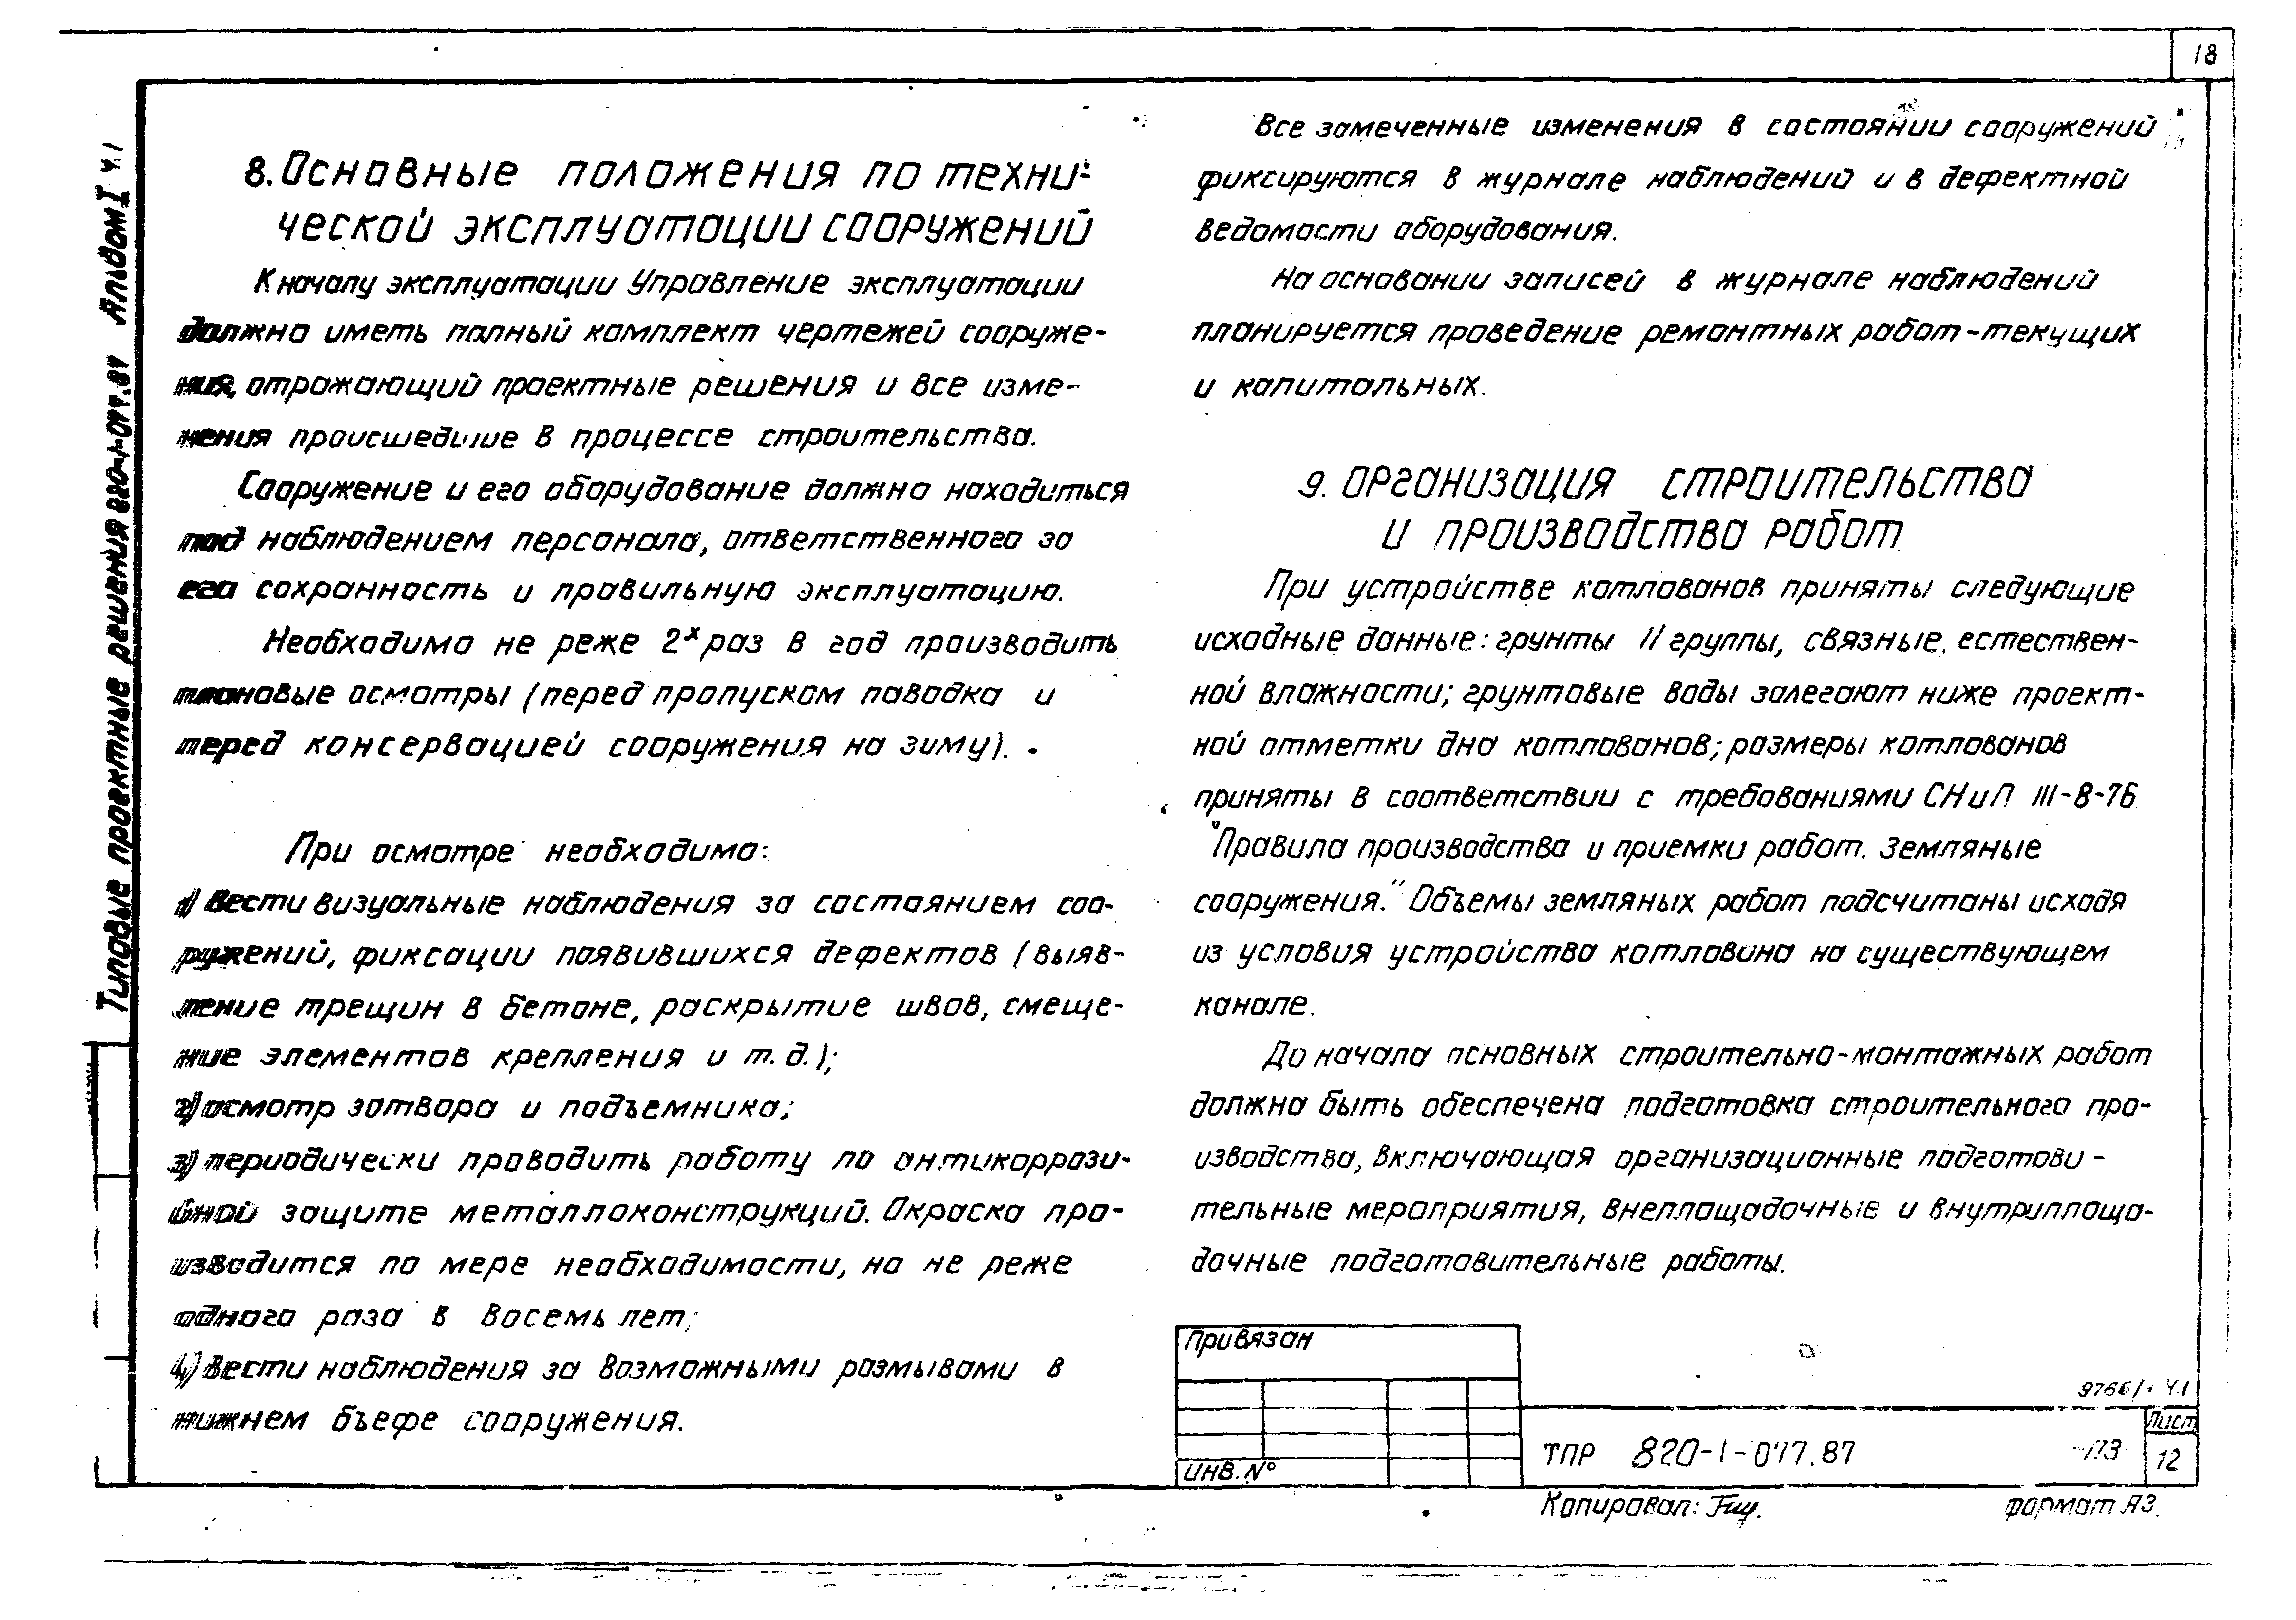 18
Типовые проектные решения 820-1-077.87 Альбом I ч.1
8. Основные положения по техни-
ческой эксплуатации сооружений
К началу эксплуатации Управление эксплуатации
должно иметь полный комплект чертежей сооруже-
ния, отражающий проектные решения и все изме-
нения происшедшие в процессе строительства.
Сооружение и его оборудование должно находиться
под наблюдением персонала, ответственного за
его сохранность и правильную эксплуатацию.
Необходимо не реже 2х раз в год производить
плановые осмотры (перед пропуском паводка и
перед консервацией сооружения на зиму).
При осмотре необходимо:
1) Вести визуальные наблюдения за состоянием соо-
ружений, фиксации появившихся дефектов (выяв-
ление трещин в бетоне, раскрытие швов, смеще-
ние элементов крепления и т.д.);
2) осмотр затвора и подъемника;
3) периодически проводить работу по антикоррози-
вной защите металлоконструкций. Окраска про-
изводится по мере необходимости, но не реже
одного раза в восемь лет;
4) Вести наблюдения за возможными размывами в
нижнем бъефе сооружения.
Все замеченные изменения в состоянии сооружений
фиксируются в журнале наблюдений и в дефектной
ведомости оборудования.
На основании записей в журнале наблюдений
планируется проведение ремонтных работ - текущих
и капитальных.
9. Организация строительства
и производства работ
При устройстве котлованов приняты следующие
исходные данные: грунты II группы, связные, естествен-
ной влажности; грунтовые воды залегают ниже проект-
ной отметки дна котлованов; размеры котлованов
приняты в соответствии с требованиями СНиП III-8-76
"Правила производства и приемки работ. Земляные
сооружения." Объемы земляных работ подсчитаны исходя
из условия устройства котлована на существующем
канале.
До начала основных строительно-монтажных работ
должна быть обеспечена подготовка строительного про-
изводства, включающая организационные подготови-
тельные мероприятия, внеплощадочные и внутриплоща-
дочные подготовительные работы.
Привязан
Инв. №
9766/ Ч.1
ТПР 820-1-077.87
ПЗ
Лист
12
Копировал:
формат А3.